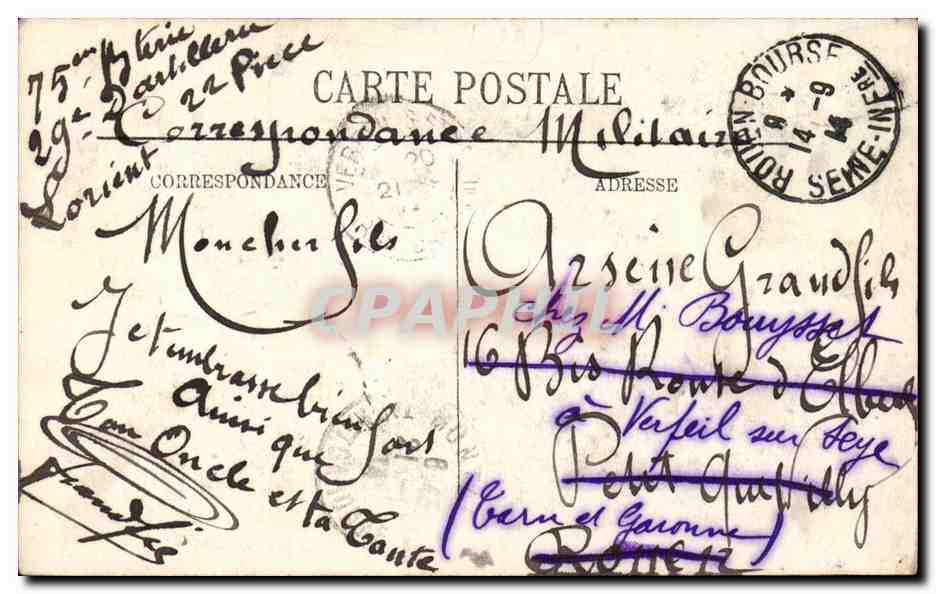 75me Bterie
29e d'artillerie
Lorient 22 Pièce
CARTE POSTALE
Correspondance Militaire
CORRESPONDANCE
Mon cher fils
Je t'embrasse bien fort
Ainsi que
Ton Oncle et ta Tante
Grandfils
ADRESSE
Arsène Grandfils
chez M. Bouysset
16 Bis Route d'Elbeuf
à Verfeil sur Seye
Petit Quevilly
(Tarn et Garonne)
Rouen
ROUEN-BOURSE
SEINE-INFRE
8
14-9
14
20
21
CPAPHIL